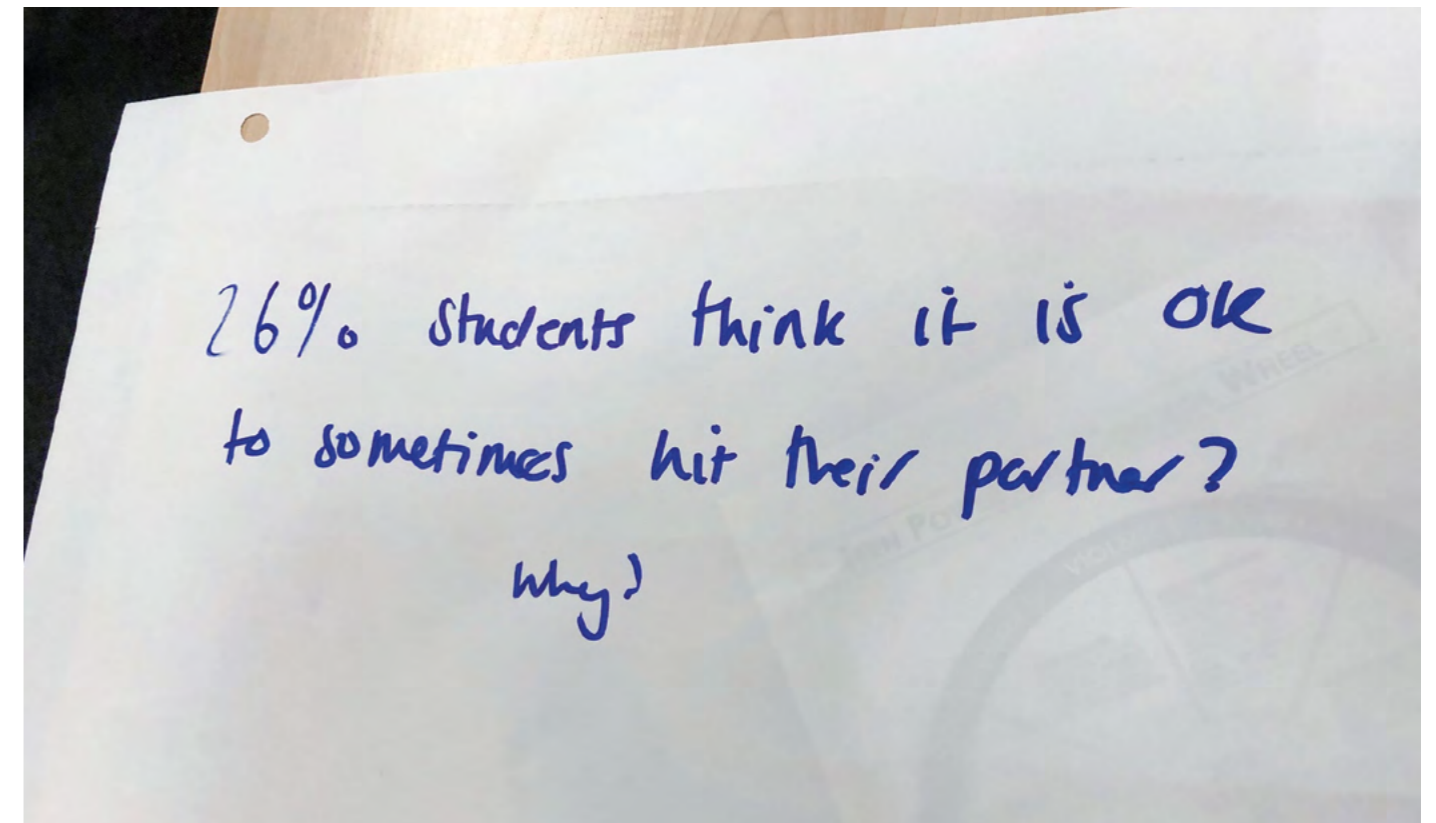 26% students think it is ok
to sometimes hit their partner?
Why?
WHEEL